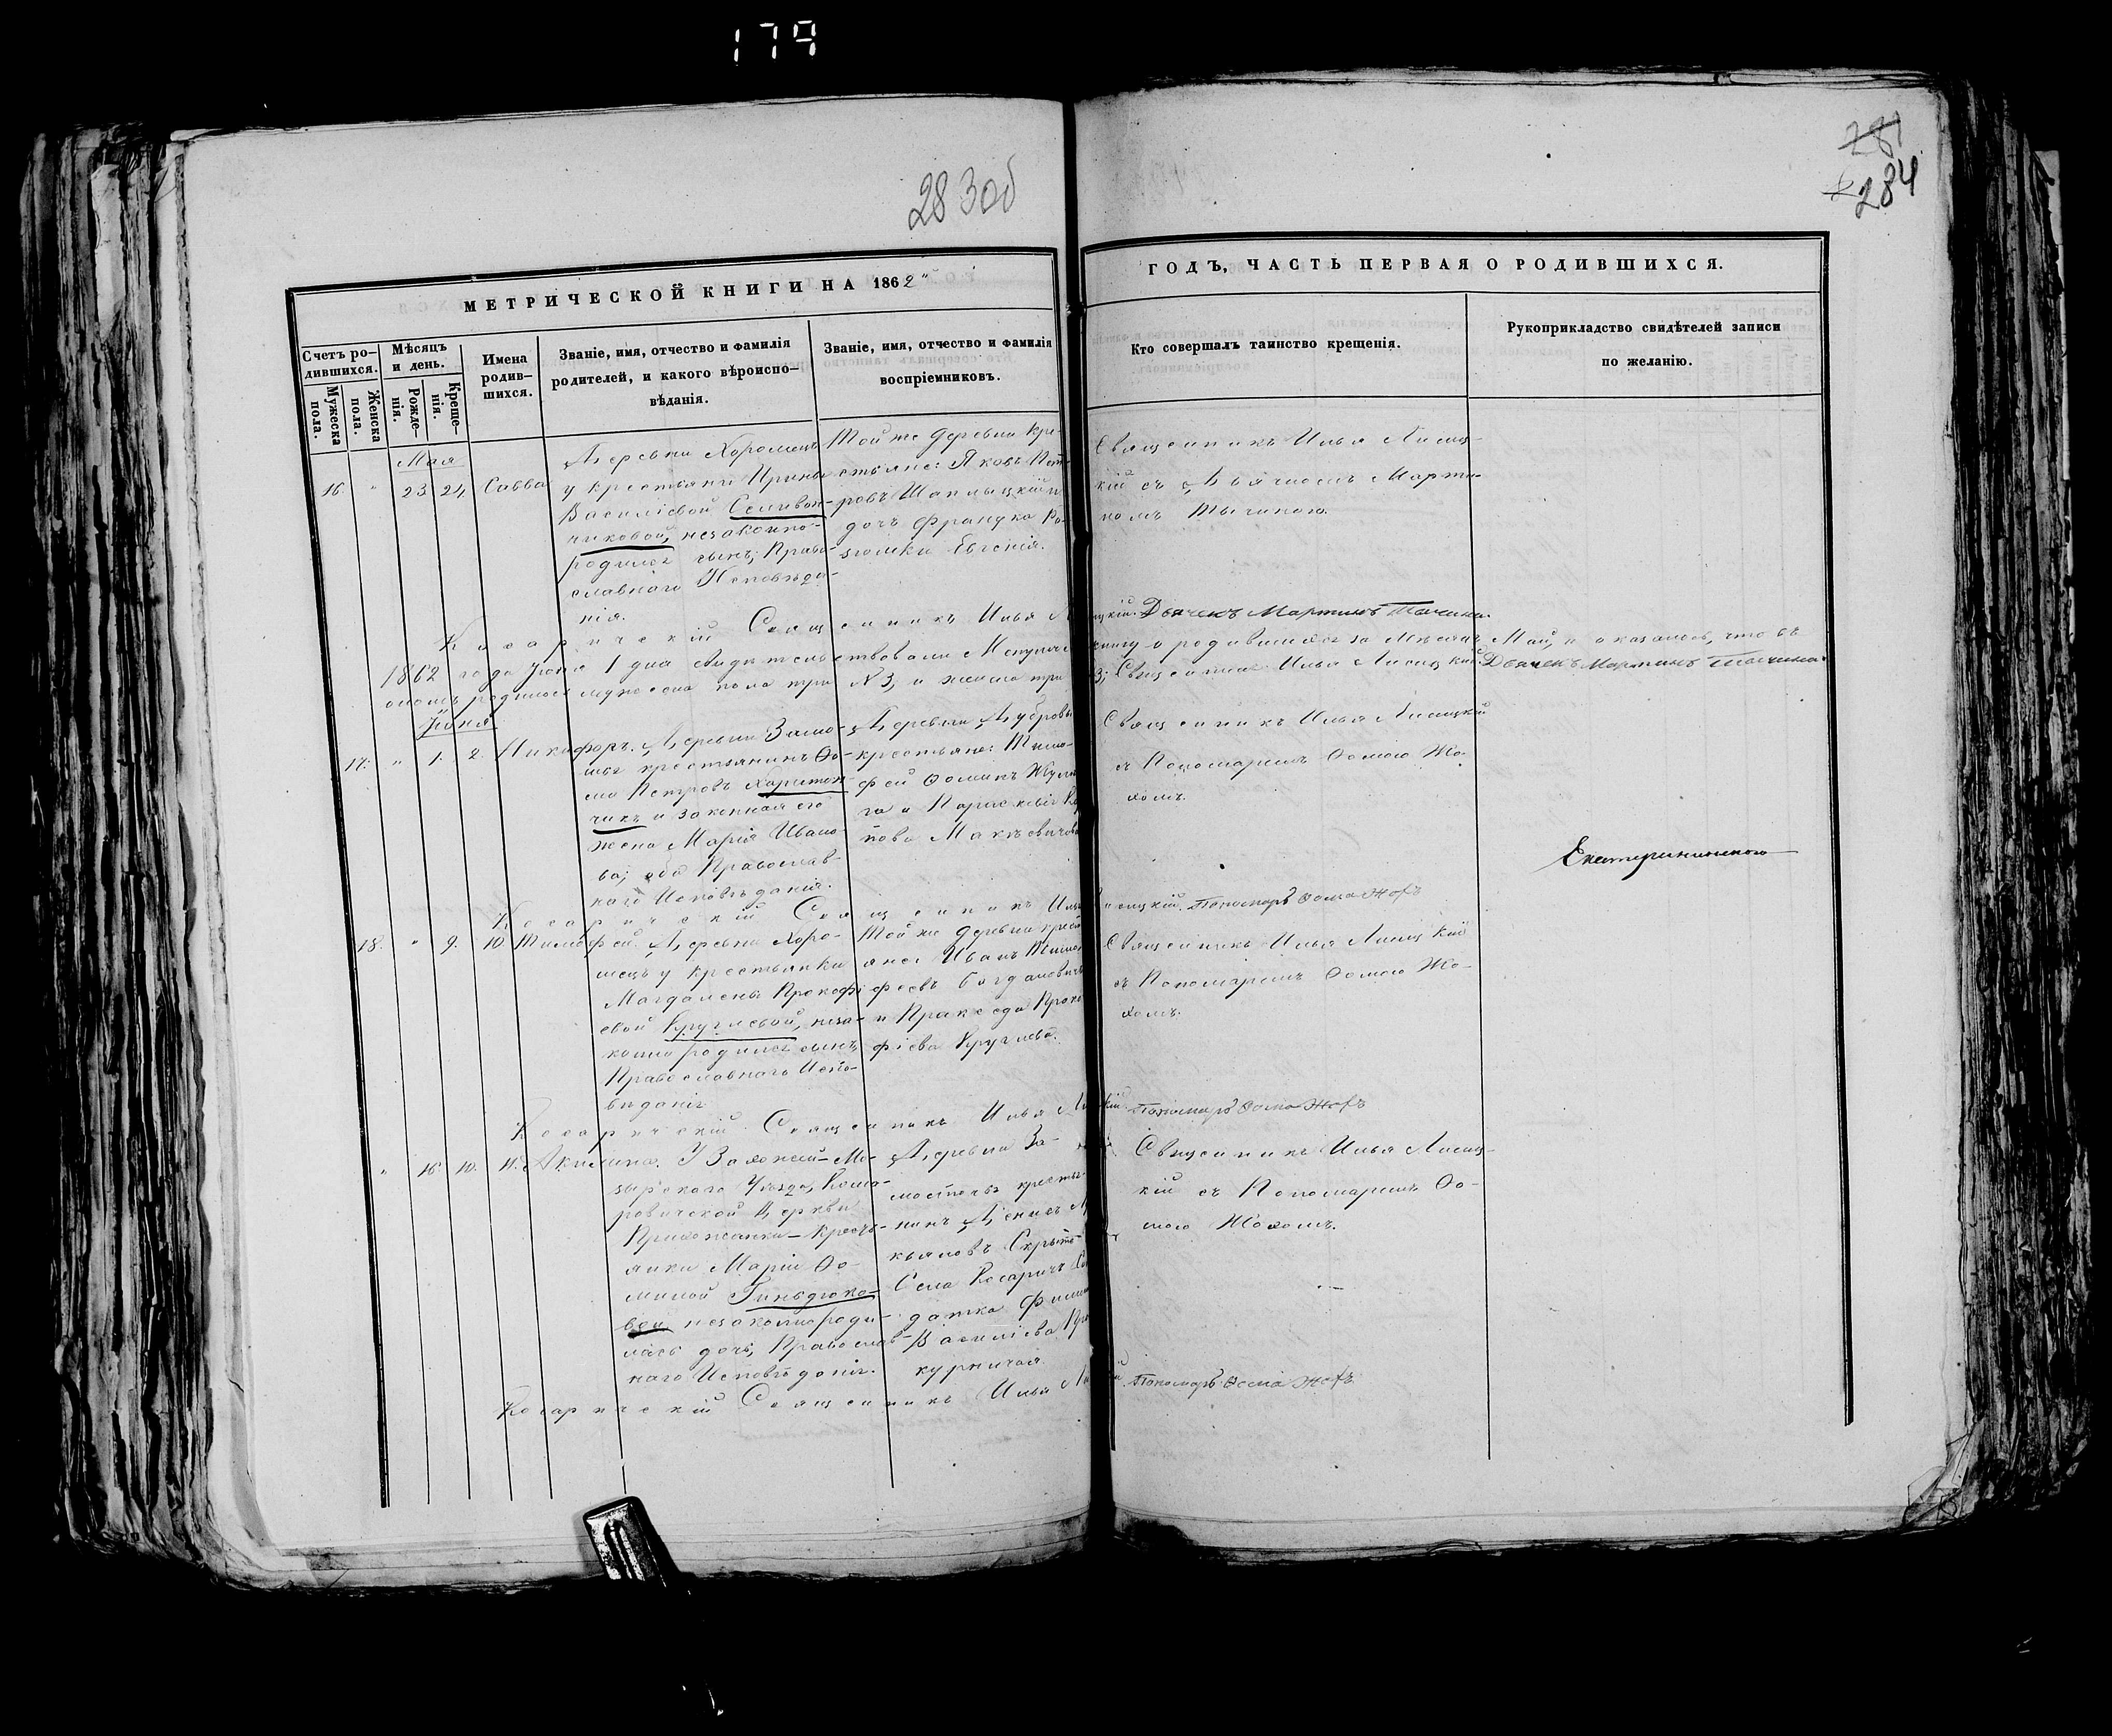 179
283об
281
284
МЕТРИЧЕСКОЙ КНИГИ НА 1862
ГОДЪ, ЧАСТЬ ПЕРВАЯ О РОДИВШИХСЯ.
Счетъ ро-
дившихся.
Мужеска
пола.
Женска
пола.
Мѣсяцъ
и день.
Рожде-
нія.
Креще-
нія.
Имена
родив-
шихся.
Званіе, имя, отчество и фамилія
родителей, и какого вѣроиспо-
вѣданія.
Званіе, имя, отчество и фамилія
воспріемниковъ.
Кто совершалъ таинство крещенія.
Рукоприкладство свидѣтелей записи
по желанію.
Мая
16. " 23 24 Савва
Деревни Хоромецъ
у крестьянки Ирины
Василіевой Селивон-
чиковой, незаконно-
родился сынъ; Право-
славнаго Исповѣда-
нія.
Той же деревни кре-
стьяне: Яковъ Пет-
ровъ и
дочь Француа Ко-
Евгенія.
Священникъ Илья Лисиц-
кій съ Дьячкомъ Марти-
номъ Тычиною.
Косаричскій Священникъ Илья Лисицкій. Дьячекъ Мартинъ Тычина.
1862 года Іюня 1 дня свидетельствовали книгу о родившихся за Мѣсяцъ Май, и оказалось, что въ
ономъ родилось мужеска пола три № 3, и женска три 3; Священникъ Илья Лисицкій. Дьячекъ Мартинъ Тычина.
Іюня
17. " 1. 2. Никифоръ.
Деревни Замо-
шья крестьянинъ Ѳо-
ма Петровъ Харитон-
чикъ и законная его
жена Марія Ивано-
ва; оба Православ-
наго Исповѣданія.
Деревни Дубровы
крестьяне: Тимо-
фей Ѳоминъ
и Параскевія
Священникъ Илья Лисицкій
съ Пономаремъ Ѳомою Жо-
хомъ.
Екатерининского
Косаричскій Священникъ Илья Лисицкій. Пономарь Ѳома Жохъ
18. " 9. 10. Тимофей.
Деревни Хоро-
мецъ у крестьянки
Магдалены Прокофі-
евой Круглевой, неза-
конно родился сынъ,
Православнаго Испо-
вѣданія
Той же деревни крестья-
яне: Иванъ Тимо-
феевъ Богдановичъ
и Пракседа Проко-
фіева Круглева.
Священникъ Илья Лисицкій
съ Пономаремъ Ѳомою Жо-
хомъ.
Косаричскій Священникъ Илья Лисицкій. Пономарь Ѳома Жохъ
" 16. 10. 11. Акилина.
У Захожей-Мо-
зырскаго Уѣзда, Кома-
ровичской Церкви
Прихожанки-Кресть-
янки Маріи Ѳо-
миной Гиньдюко-
вой незаконно роди-
лась дочь, Православ-
наго Исповѣданія.
Деревни За-
мосточья крестья-
нинъ Денисъ
Села Косаричъ
датка
Василіева
Священникъ Илья Лисиц-
кій съ Пономаремъ Ѳо-
мою Жохомъ.
Косаричскій Священникъ Илья Пономарь Ѳома Жохъ